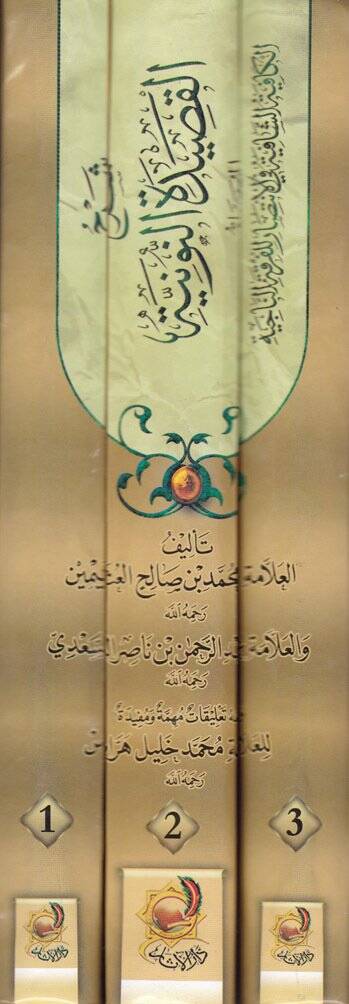 الكافية الشافية في الانتصار للفرقة الناجية
شرح
القصيدة النونية
تأليف
العلامة محمد بن صالح العثيمين
رحمه الله
والعلامة عبد الرحمن بن ناصر السعدي
رحمه الله
تعليقات مهمة ومفيدة
للعلامة محمد خليل هراس
رحمه الله
1
2
3
دار الآثار
دار الآثار
دار الآثار